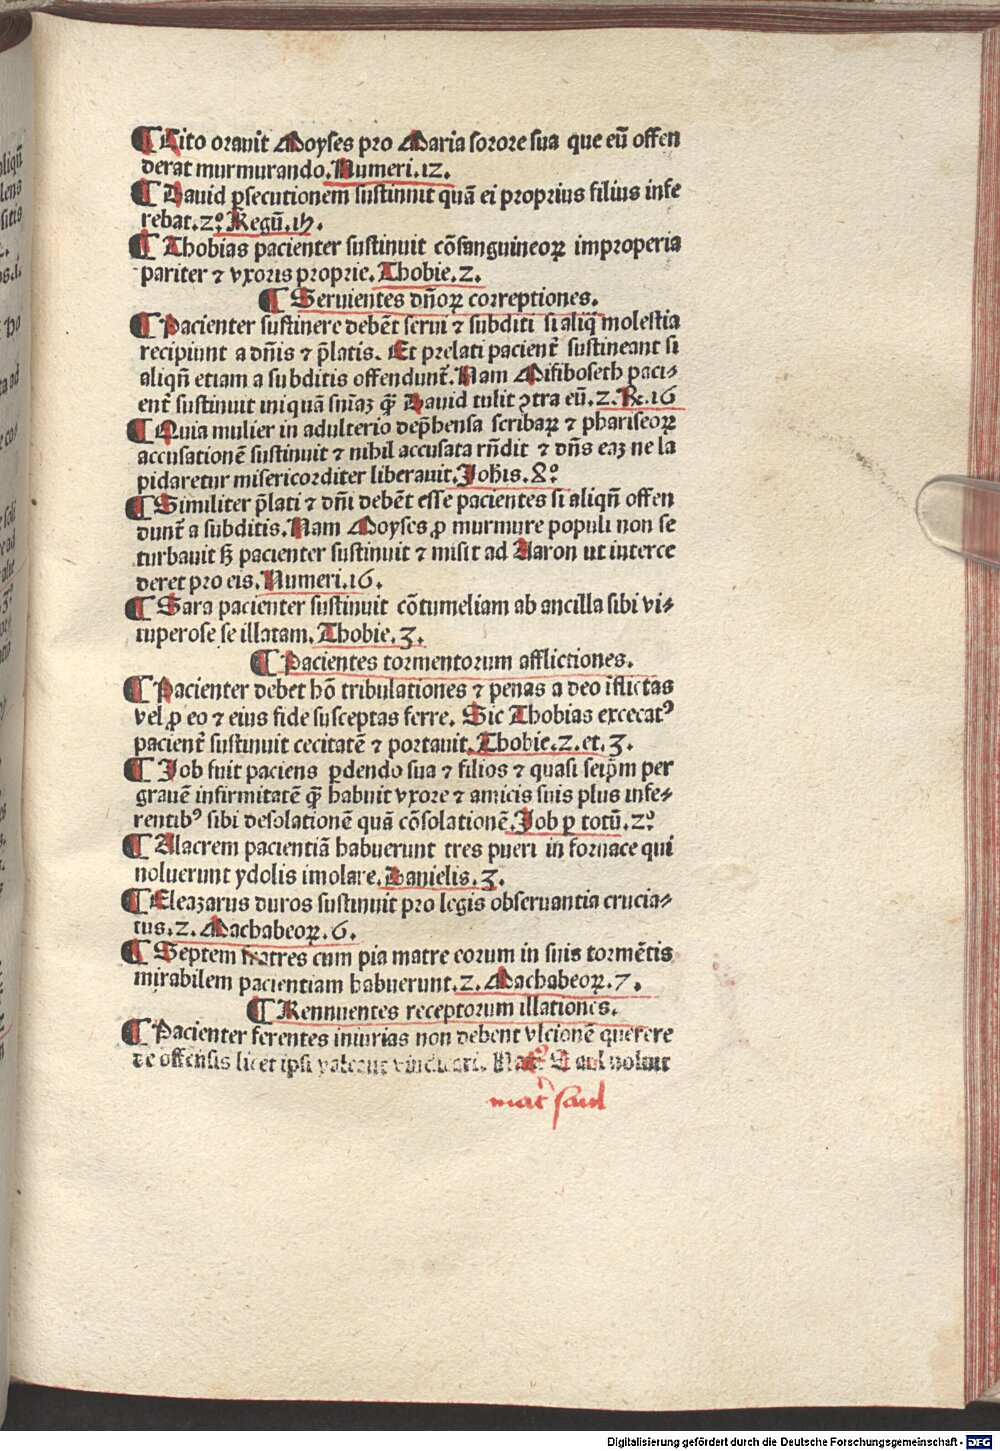 ¶ Cito orauit Moyses pro Maria sorore sua que eū offen
derat murmurando. Numeri .12.
¶ Dauid ꝑsecutionem sustinuit quā ei proprius filius infe
rebat. 2º. Regū .15.
¶ Thobias pacienter sustinuit cōsanguineoꝝ improperia
pariter ⁊ vxoris proprie. Thobie .2.
¶ Seruientes dñoꝝ correptiones.
¶ Pacienter sustinere debēt serui ⁊ subditi si aliq̄ molestia
recipiunt a dñis ⁊ p̄latis. Et prelati pacient̄ sustineant si
aliqñ etiam a subditis offendunt̄. Nam Mifiboseth paci⸗
ent̄ sustinuit iniquā sniaꝫ q̄ꝫ Dauid tulit ꝯtra eū. 2. Re. 16
¶ Quia mulier in adulterio dep̄hensa scribaꝝ ⁊ phariseoꝝ
accusationē sustinuit ⁊ nihil accusata rñdit ⁊ dñs eaꝫ ne la
pidaretur misericorditer liberauit. Joħis. 8º
¶ Similiter p̄lati ⁊ dñi debēt esse pacientes si aliqñ offen
dunt̄ a subditis. Nam Moyses ꝓ murmure populi non se
turbauit sꝫ pacienter sustinuit ⁊ misit ad Aaron ut interce
deret pro eis. Numeri .16.
¶ Sara pacienter sustinuit cōtumeliam ab ancilla sibi vi⸗
tuperose se illatam. Thobie. 3.
¶ Pacientes tormentorum afflictiones.
¶ Pacienter debet hō tribulationes ⁊ penas a deo iflictas
vel ꝓ eo ⁊ eius fide susceptas ferre. Sic Thobias excecatꝰ
pacient̄ sustinuit cecitatē ⁊ portauit. Thobie. 2. et. 3.
¶ Job fuit paciens ꝑdendo sua ⁊ filios ⁊ quasi seip̄m per
grauē infirmitatē q̄ꝫ habuit vxore ⁊ amicis suis plus infe⸗
rentibꝰ sibi desolationē quā cōsolationē. Job ꝑ totū. 2º
¶ Alacrem pacientiā habuerunt tres pueri in fornace qui
noluerunt ydolis imolare. Danielis. 3.
¶ Eleazarus duros sustinuit pro legis obseruantia crucia⸗
tus. 2. Machabeoꝝ. 6.
¶ Septem fratres cum pia matre eorum in suis tormētis
mirabilem pacientiam habuerunt. 2. Machabeoꝝ. 7.
¶ Rennuentes receptorum illationes.
¶ Pacienter ferentes iniurias non debent vlcionē querere
de offensis licet ipsi valeant vindicari. Saul noluit
mat̄ saul
Digitalisierung gefördert durch die Deutsche Forschungsgemeinschaft - DFG